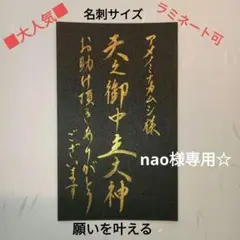 ■大人気■
名刺サイズ
ラミネート可
アメノミナカヌシ様
天之御中主大神
お助け頂きありがとう
ございます
nao様専用☆
願いを叶える